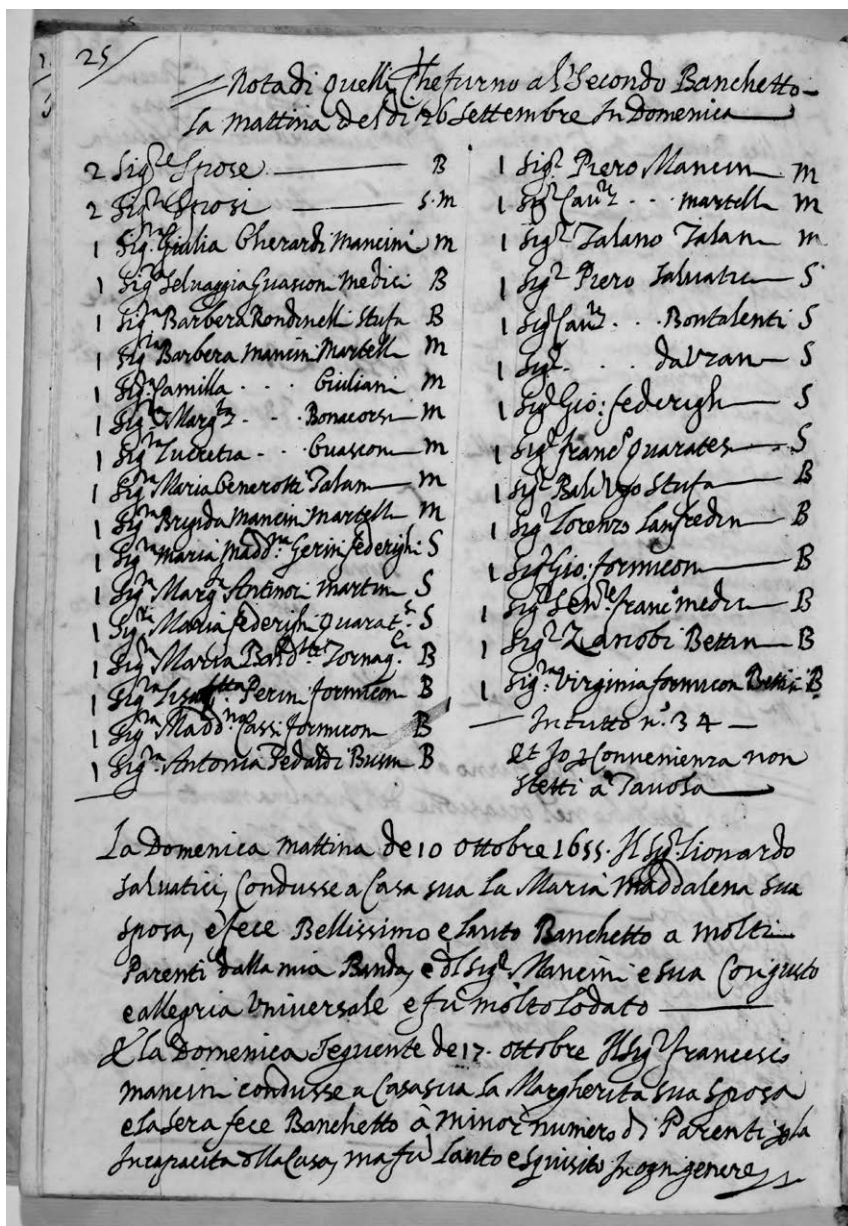 25
Nota di quelli Che furno al Secondo Banchetto
La mattina del di 26 Settembre In Domenica
2 Sig.re Spose B
2 Sig.ri Sposi S. M
1 Sig.ra Giulia Gherardi Mancini M
1 Sig.ra Selvaggia Guascon Medici B
1 Sig.ra Barbera Rondinelli Stufa B
1 Sig.ra Barbera Mancini Martell M
1 Sig.ra Camilla . . . Giuliani M
1 Sig.ra Marg.ta . . . Bonacorsi M
1 Sig.ra Lucretia . . . Guascon M
1 Sig.ra Maria Generotti Talan M
1 Sig.ra Brigida Mancin Martell M
1 Sig.ra Maria Madd.na Gerini federighi S
1 Sig.ra Marg.ta Antinori Martin S
1 Sig.ra Maria federigh Quarat.si S
1 Sig.ra Maria Tornaq.ci B
1 Sig.ra Perin formicon B
1 Sig.ra Madd.na Cassi formicon B
1 Sig.ra Antonia B
1 Sig.r Piero Mancin M
1 Sig.r Cav.re . . . Martell M
1 Sig.r Talano Talan M
1 Sig.r Piero Salvatici S
1 Sig.r Cav.re . . . Bontalenti S
1 Sig.r . . . da Uzan S
1 Sig.r Gio: federigh S
1 Sig.r franc.o Quarates S
1 Sig.r Ugo Stufa B
1 Sig.r Lorenzo Lanfredin B
1 Sig.r Gio: formicon B
1 Sig.r Sen.re franc.o Medici B
1 Sig.r Zanobi Bettin B
1 Sig.ra Virginia formicon Bettin B
In tutto n.o 34
Et Io p Convenienza non
stetti a Tavola
La Domenica mattina de 10 ottobre 1655. Il Sig.r Lionardo
Salvatici, Condusse a Casa sua La Maria Maddalena sua
sposa, e fece Bellissimo e lauto Banchetto a molti
Parenti dalla mia Banda, e dl Sig.r Mancini e sua Con gusto
e allegria Universale e fu molto lodato
& la Domenica Seguente de 17. ottobre Il Sig.r francesco
mancini condusse a Casa sua la Margherita sua sposa
e la sera fece Banchetto à minor numero di Parenti p la
Incapacita dlla Casa, ma fu lauto e squisito In ogni genere